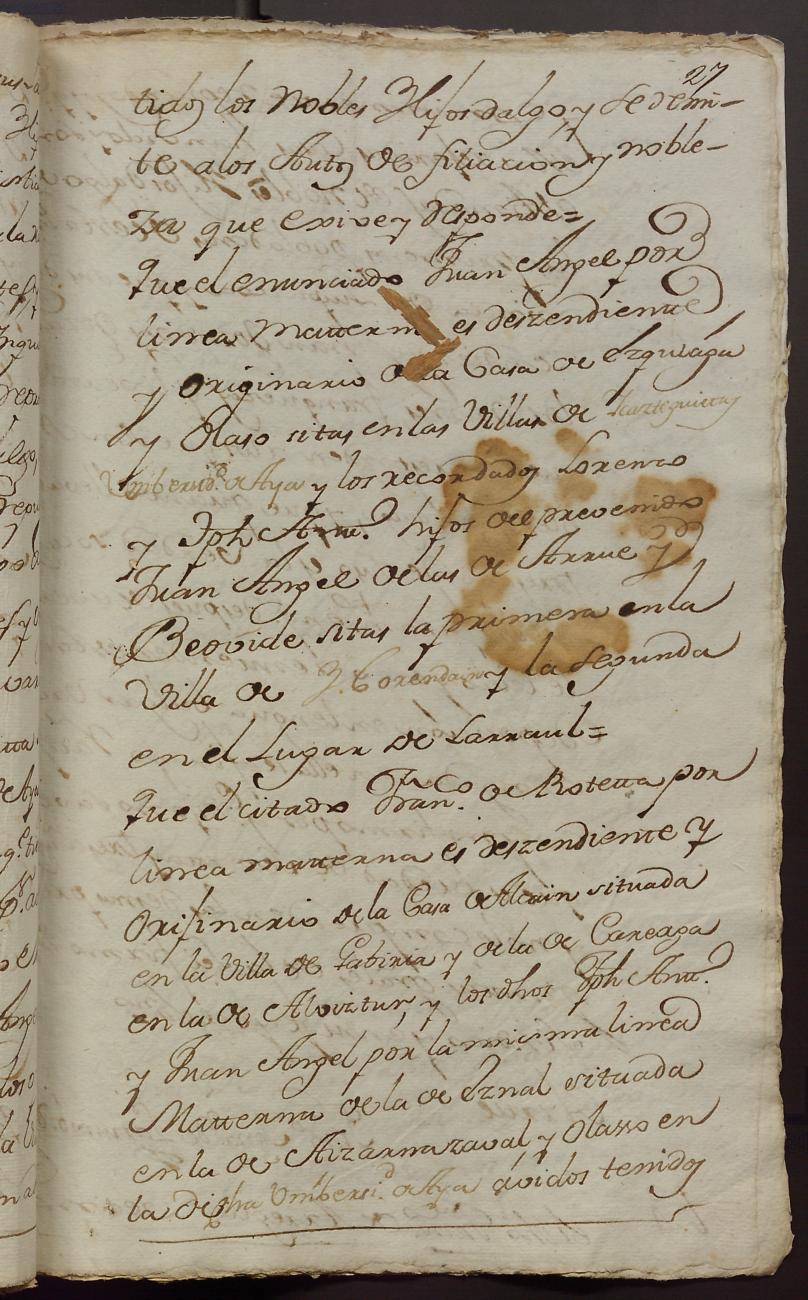 27
tidos los Nobles Hijosdalgo, y se remi-
te a los Autos de filiacion, y noble-
za que exive, y Responde=
Que el enunciado Juan Angel por
linea Matterna es deszendiente
y Originario de la Casa de Ezquiaga
y Olaso sitas en las Villas de
Vnibersid.d de Aya y los recordados Lorenzo
y Jph Antt.o hijos del prevenido
Juan Angel de las de Arrue y
Beovide sitas la primera en la
Villa de Y. Corendain y la segunda
en el Lugar de Larraul=
Que el citado Fran.co de Rotetta por
linea matterna es deszendiente y
Orijinario de la Casa de Alcain situada
en la Villa de Gabiria y de la de Careaga
en la de Alviztur, y los dhos Jph Antt.o
y Juan Angel por la misma linea
Matterna de la de Eznal situada
en la de Aizarnazaval y Olasso en
la dicha Vnibersi.d de Aya avidos tenidos